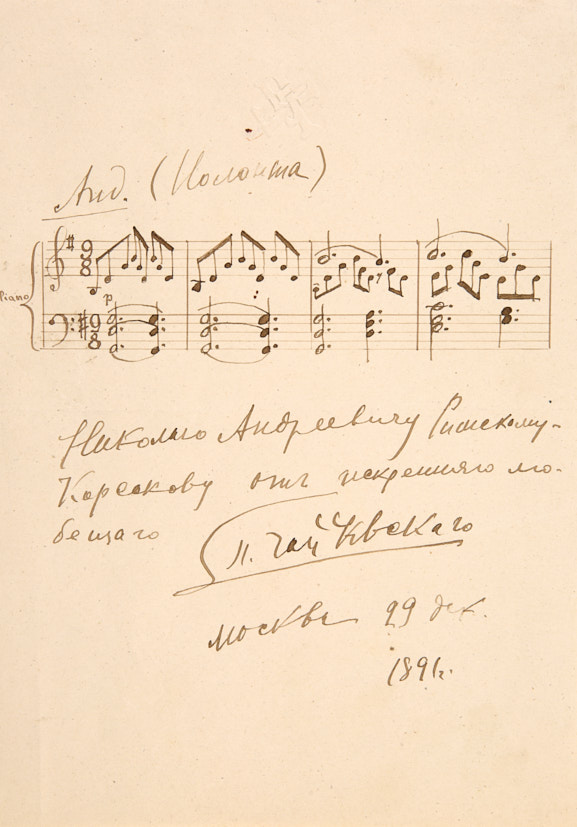 Анд. (Иоланта)
Piano
9 8
p
9 8
Николаю Андреевичу Римскому-
Корсакову отъ искренняго лю-
бещаго
П. Чайковскаго
Москва 29 дек.
1891г.